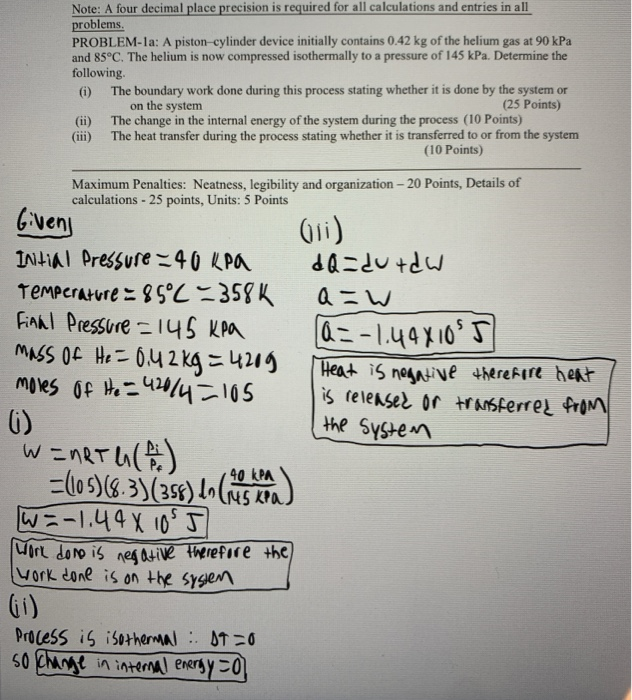 Note: A four decimal place precision is required for all calculations and entries in all
problems.
PROBLEM-1a: A piston-cylinder device initially contains 0.42 kg of the helium gas at 90 kPa
and 85°C. The helium is now compressed isothermally to a pressure of 145 kPa. Determine the
following.
(i) The boundary work done during this process stating whether it is done by the system or
on the system (25 Points)
(ii) The change in the internal energy of the system during the process (10 Points)
(iii) The heat transfer during the process stating whether it is transferred to or from the system
(10 Points)
Maximum Penalties: Neatness, legibility and organization – 20 Points, Details of
calculations - 25 points, Units: 5 Points
Given
Initial Pressure = 90 kPa
Temperature = 85°C = 358K
Final Pressure = 145 kPa
Mass of He = 0.42kg = 420g
moles of He = 420/4 = 105
(i)
W = nRT ln(Pi/Pf)
= (105)(8.3)(358) ln(90 kPa/145 kPa)
W = -1.49 x 10⁵ J
Work done is negative therefore the
work done is on the system
(ii)
Process is isothermal ∴ ΔT = 0
so change in internal energy = 0
(iii)
dQ = du + dw
Q = W
Q = -1.49 x 10⁵ J
Heat is negative therefore heat
is released or transferred from
the system